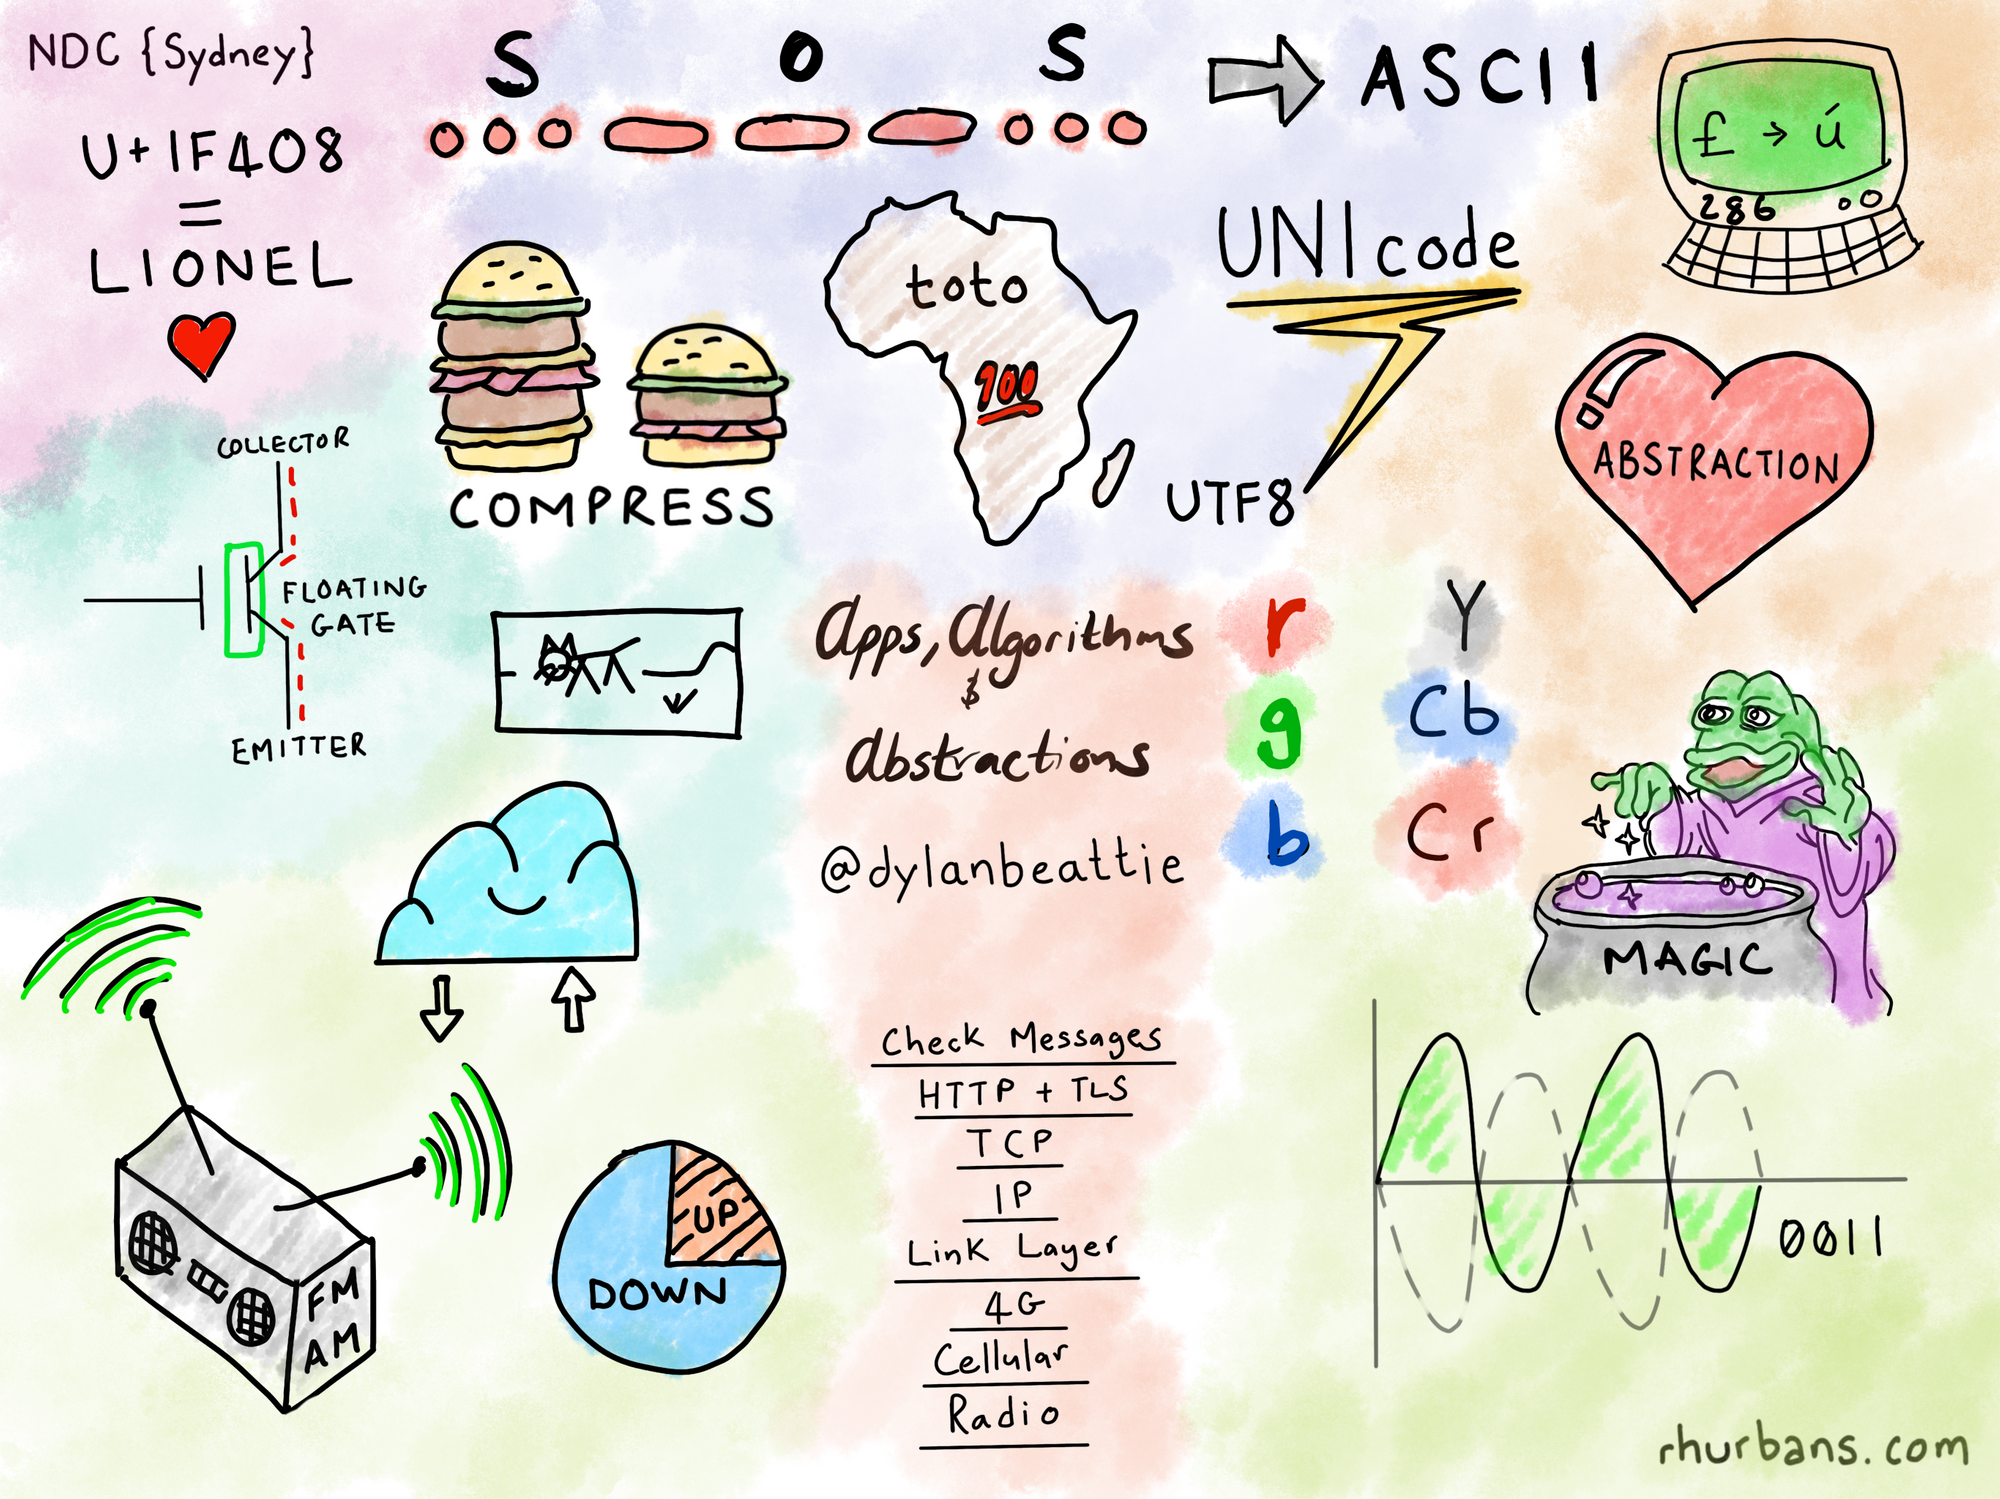 NDC {Sydney}
S O S
ASCII
£ → ú
286
U+1F408
=
LIONEL
toto
100
UNIcode
UTF8
COMPRESS
ABSTRACTION
COLLECTOR
FLOATING
GATE
EMITTER
Apps, Algorithms
&
Abstractions
@dylanbeattie
r
g
b
Y
Cb
Cr
MAGIC
Check Messages
HTTP + TLS
TCP
IP
Link Layer
4G
Cellular
Radio
FM
AM
UP
DOWN
0011
rhurbans.com